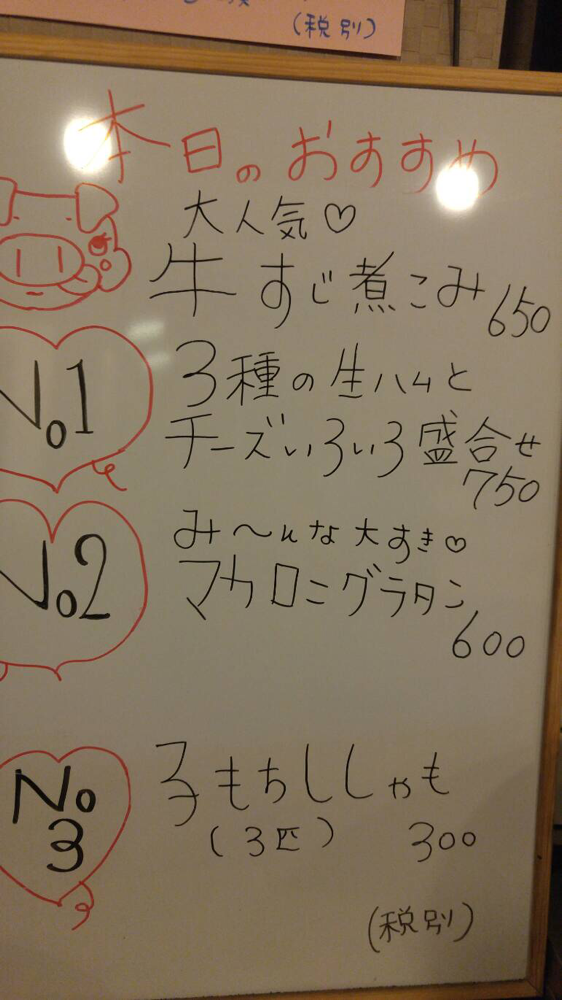 (税別)
本日のおすすめ
大人気♡
牛すじ煮こみ 650
No1
3種の生ハムと
チーズいろいろ盛合せ
750
No2
み〜んな大すき♡
マカロニグラタン
600
No
3
子もちししゃも
(3匹) 300
(税別)